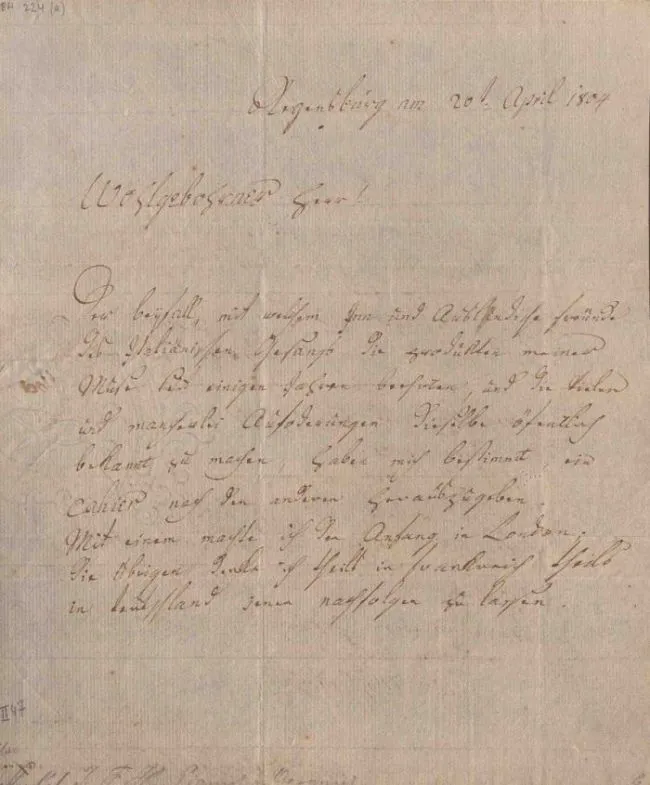 BH 224 (a)
Regensburg am 20t. April 1804
Wohlgebohrner Herr!
Der beyfall, mit welchem Inn und Ausländische freunde
des Italianischen Gesangs die produkten meiner
Muse seit einigen Jahren beehrten, und die vielen
und mancherlei Auforderungen dieselbe öfentlich
bekannt zu machen, haben mich bestimmt, ein
cahier nach den anderen herauszugeben.
Mit einem machte ich den Anfang in London;
die übrigen denke ich theils in frankreich theils
in teutschland jenen nachfolgen zu lassen.
II 47